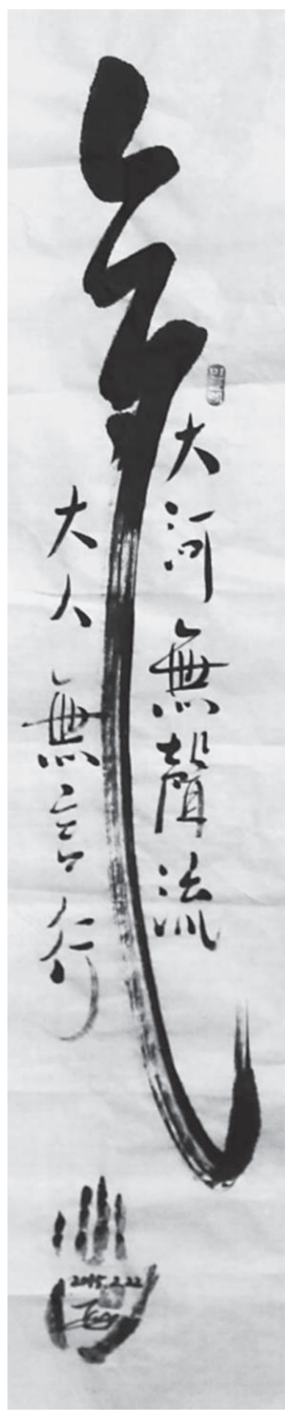 大河無聲流
大人無言行
2015.2.22